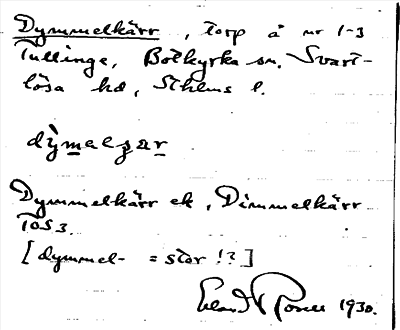 Dymmelkärr, torp å nr 1-3
Tullinge, Botkyrka sn. Svart-
lösa hd, Sthlms l.
dỳmelçar
Dymmelkärr ek, Dimmelkärr
TOS 3.
[dymmel- = stor !?]
1930.